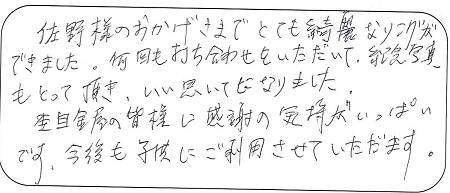 佐野様のおかげさまでとても綺麗なリングが
できました。何回も打ち合わせをいただいて、記念写真
もとって頂き、いい思いでとなりました。
杢目金屋の皆様に感謝の気持がいっぱい
です。今後も子供にご利用させていただます。